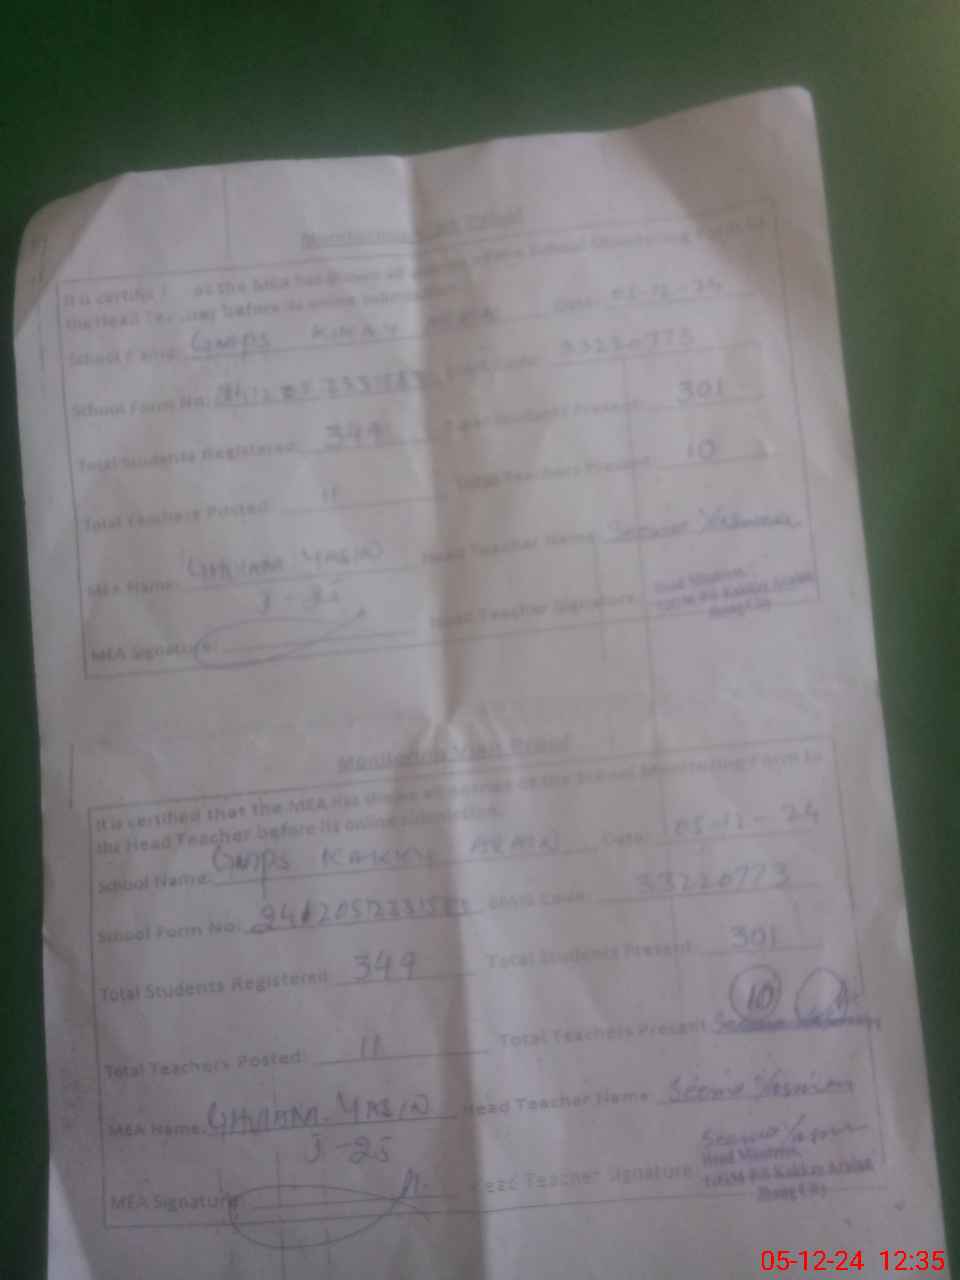 Monitoring Visit Proof
It is certified that the MEA has shown all entries of the School Monitoring Form to
the Head Teacher before its online submission.
School Name: GMPS Date: 05-12-24
School Form No: EMIS Code: 33220773
Total Students Registered: 349 Total Students Present: 301
Total Teachers Posted: 11 Total Teachers Present: 10
MEA Name: GHULAM YASIN Head Teacher Name: Seema Yasmeen
J-25
MEA Signature: Head Teacher Signature:
Head Mistress,
Jhang City
Monitoring Visit Proof
It is certified that the MEA has shown all entries of the School Monitoring Form to
the Head Teacher before its online submission.
School Name: GMPS Date: 05-12-24
School Form No: EMIS Code: 33220773
Total Students Registered: 349 Total Students Present: 301
Total Teachers Posted: 11 Total Teachers Present 10
MEA Name: GHULAM YASIN Head Teacher Name: Seema Yasmeen
J-25
MEA Signature: Head Teacher Signature:
Head Mistress,
Jhang City
05-12-24 12:35